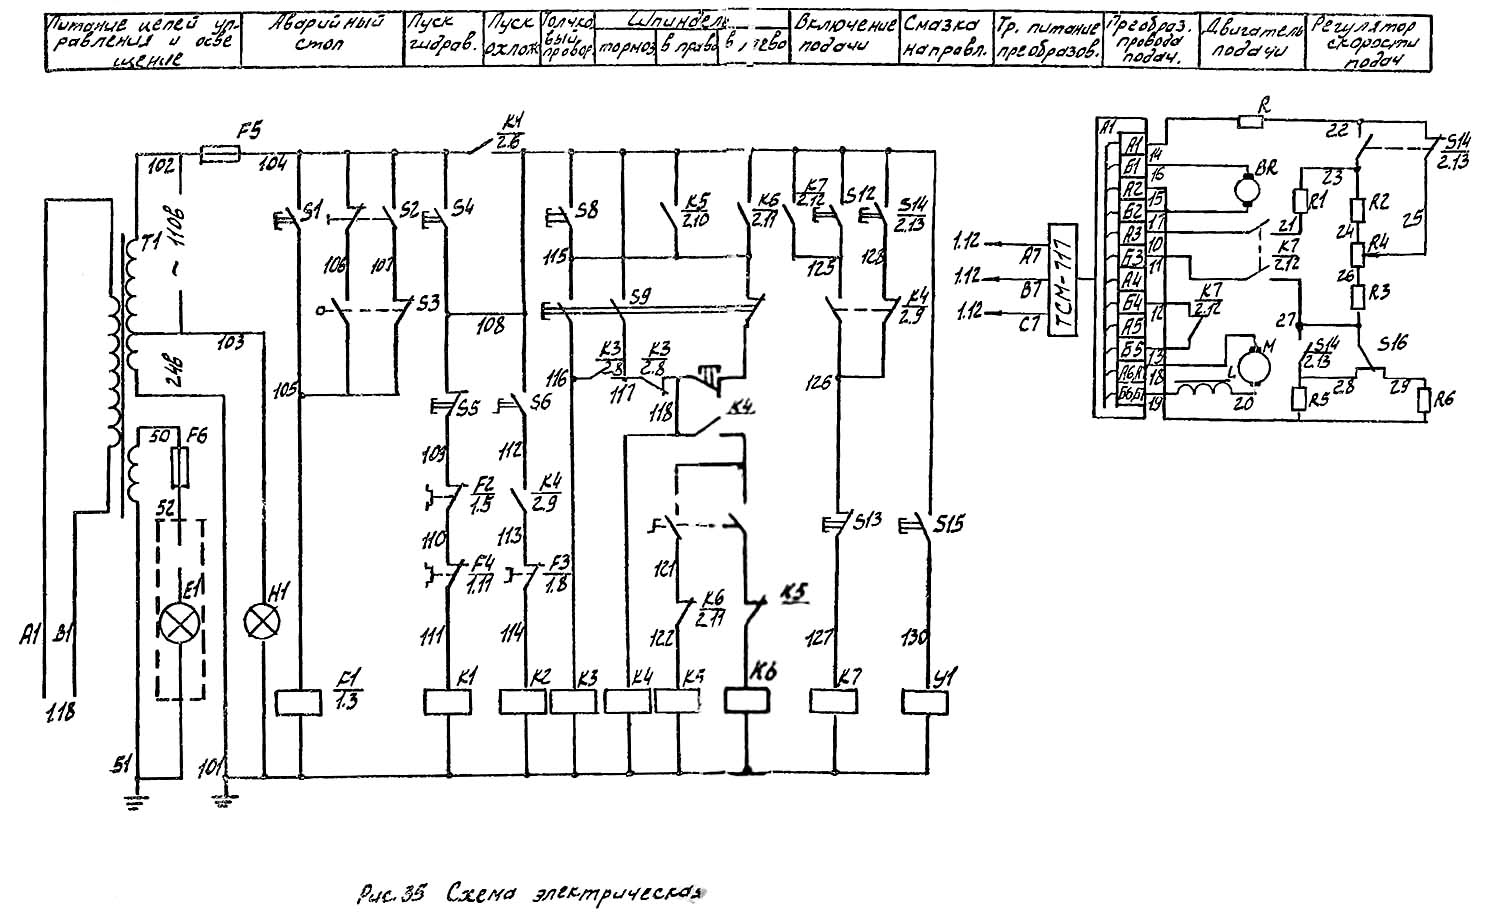 Питание цепей уп-
равления и осве
щение
Аварийный
стоп
Пуск
гидрав.
Пуск
охлож.
Толчко
вый
провор.
Шпиндель
тормоз
в право
в лево
Включение
подачи
Смазка
направл.
Тр. питание
преобразов.
Преобраз.
провода
подач.
Двигатель
подачи
Регулятор
скорости
подач
F5
102
104
K1
2.6
T1
~ 110В
103
24В
105
50
F6
52
E1
H1
A1
B1
1.18
51
101
S1
S2
106
107
S3
F1
1.3
S4
108
S5
109
F2
1.5
110
F4
1.11
111
K1
S6
112
K4
2.9
113
F3
1.8
114
K2
S8
115
S9
116
K3
2.8
117
K3
2.8
118
K3
K4
K5
2.10
K6
2.11
K4
121
K6
2.11
122
K5
K5
K6
K7
2.12
S12
S14
2.13
125
128
K4
2.9
126
S13
127
K7
S15
130
У1
1.12
A7
1.12
B7
1.12
C7
ТСМ-717
A1
A1
Б1
A2
Б2
A3
Б3
A4
Б4
A5
Б5
A6Я
Б6Б1
14
16
15
17
10
11
12
13
18
19
R
BR
22
S14
2.13
23
R1
R2
25
21
24
R4
K7
2.12
26
R3
K7
2.12
27
S14
2.13
S16
M
L
20
28
29
R5
R6
Рис.35 Схема электрическая